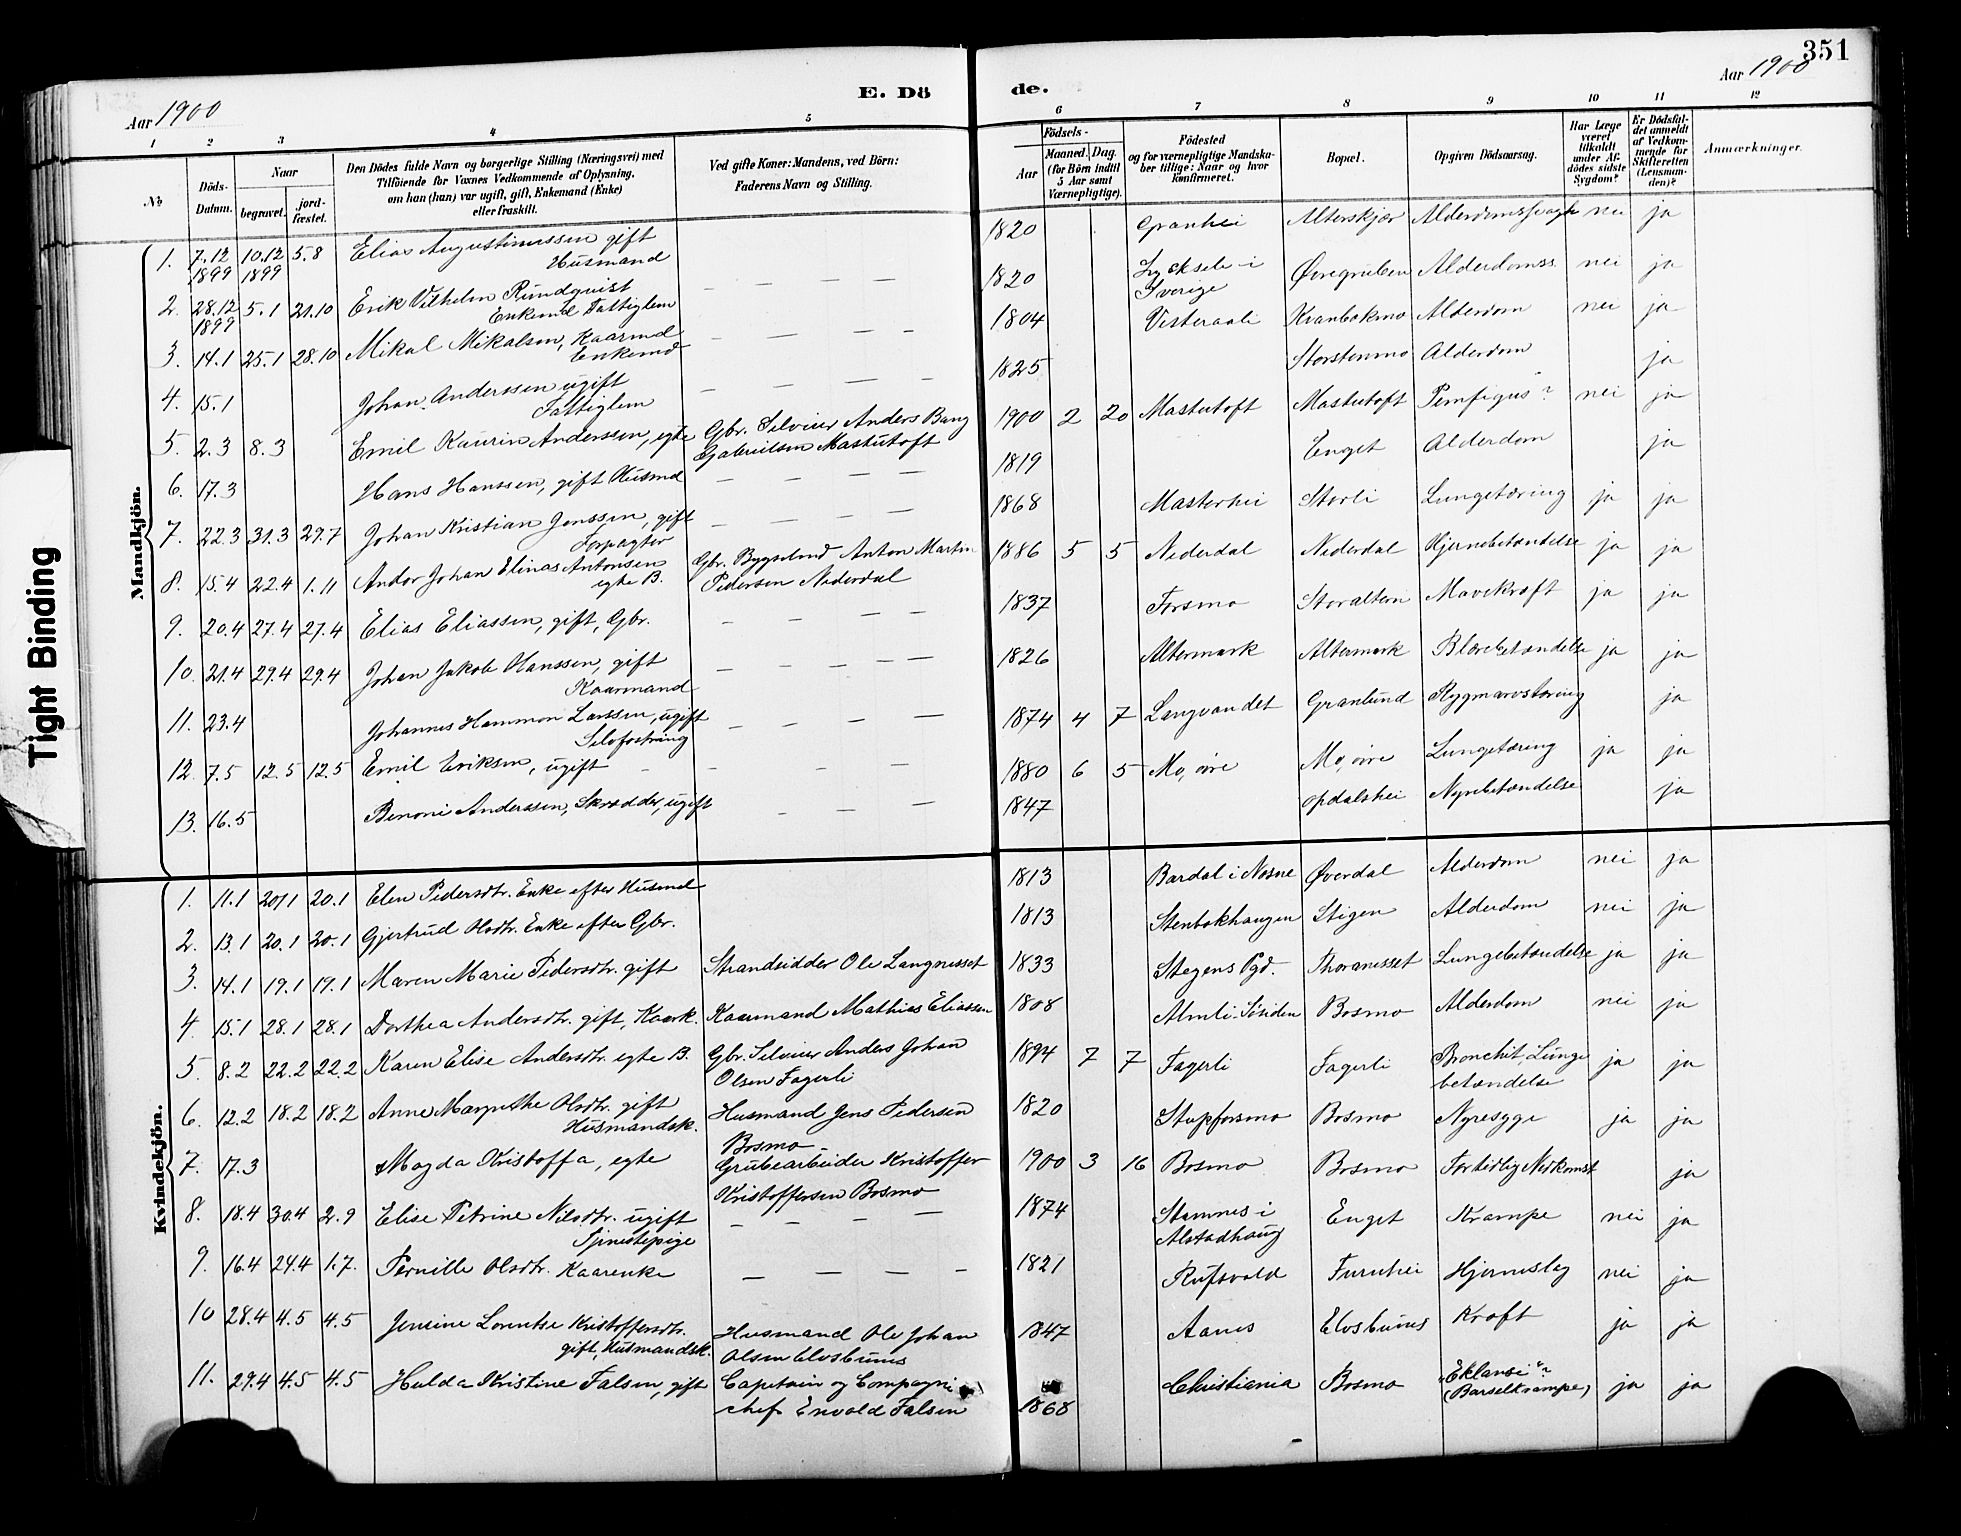 351
Aar 1900
E. Dö
de.
Aar 1900
1 2 3 4 5 6 7 8 9 10 11 12
No
Döds-Datum.
Naar
begravet.
jord-fæstet.
Den Dödes fulde Navn og borgerlige Stilling (Næringsvei) med
Tilföiende for Voxnes Vedkommende af Oplysning,
om han (hun) var ugift, gift, Enkemand (Enke)
eller fraskilt.
Ved gifte Koner: Mandens, ved Börn:
Faderens Navn og Stilling.
Födsels-
Aar
Maaned. Dag.
(for Börn indtil
5 Aar samt
Værnepligtige).
Födested
og for værnepligtige Mandska-
ber tillige: Naar og hvor
konfirmeret.
Bopæl.
Opgiven Dödsaarsag.
Har Læge
været
tilkaldt
under Af-
dödes sidste
Sygdom?
Er Dödsfal-
det anmeldt
af Vedkom-
mende for
Skifteretten
(Lensman-
den)?
Anmærkninger.
Mandkjön.
1. 7.12 1899 10.12 1899 5.8 Elias Augustinussen gift Husmand 1820 Granhei Alterskjær nei ja
2. 28.12 1899 5.1 21.10 Erik Vilhelm Rundquist Enkemd Fattiglem – – – – 1820 Lycksele i Sverige Øvregruben Alderdomss. nei ja
3. 14.1 25.1 28.10 Mikal Mikalsen, Kaarmd Enkemd – – – – 1804 Visteraali Kvanbokmo Alderdom nei ja
4. 15.1 Johan Anderssen ugift Fattiglem – – – – 1825 Storstenmo Alderdom ja
5. 2.3 8.3 Emil Kaurin Anderssen, egte Gbr. Selveier Anders Bang Gabrielsen Mastutoft 1900 2 20 Mastutoft Mastutoft Pemfigus? nei ja
6. 17.3 Hans Hanssen, gift Husmd – – – – 1819 Enget Alderdom ja
7. 22.3 31.3 29.7 Johan Kristian Jenssen, gift Forpagter – – – – 1868 Masterhei Storli Lungetæring ja ja
8. 15.4 22.4 1.11 Andor Johan Elinas Antonsen egte B. Gbr. Bygselmd Anton Martin Pedersen Nederdal 1886 5 5 Nederdal Nederdal Hjernebetændelse ja ja
9. 20.4 27.4 27.4 Elias Eliassen, gift, Gbr. – – – – 1837 Forsmo Storalteren Mavekræft ja ja
10. 21.4 29.4 29.4 Johan Jakob Hanssen, gift Kaarmand – – – – – 1826 Altermark Altermark Blærebetændelse ja ja
11. 23.4 Johannes Hammon Larssen, ugift Selvfostring – – – – 1874 4 7 Langvandet Granlund Rygmarvstæring ja
12. 7.5 12.5 12.5 Emil Eriksen, ugift – – – – 1880 6 5 Mo, øvre Mo, øvre Lungetæring ja ja
13. 16.5 Benoni Anderssen, Skrædder, ugift – – – 1847 Opdalshei Nyrebetændelse ja
Kvindekjön.
1. 11.1 20.1 20.1 Elen Pedersdtr. Enke efter Husmd 1813 Bardal i Nesne Øverdal Alderdom nei ja
2. 13.1 20.1 20.1 Gjertrud Olsdtr. Enke efter Gbr. 1813 Stenbokhaugen Stigen Alderdom nei ja
3. 14.1 19.1 19.1 Maren Marie Pedersdtr. gift Strandsidder Ole Langnesset 1833 Stegens Pgd. Thoranesset Lungebetændelse ja ja
4. 15.1 28.1 28.1 Dorthea Andersdtr. gift, Kaark. Kaarmand Mathias Eliassen 1808 Almli Søsiden Bosmo Alderdom nei ja
5. 8.2 22.2 22.2 Karen Elise Andersdtr. egte B. Gbr. Selveier Anders Johan Olsen Fagerli 1894 7 7 Fagerli Fagerli Bronchit, Lungebetændelse ja ja
6. 12.2 18.2 18.2 Anne Margrethe Olsdtr. gift Husmandsk. Husmand Jens Pedersen Bosmo 1820 Stupforsmo Bosmo Nyresyge ja ja
7. 17.3 Magda Kristoffa, egte Grubearbeider Kristoffer Kristoffersen Bosmo 1900 3 16 Bosmo Bosmo Fortidlig Nedkomst ja
8. 18.4 30.4 2.9 Elise Petrine Nilsdtr. ugift Tjenestepige – – – – 1874 Stamnes i Alstadhaug Enget Krampe nei ja
9. 16.4 24.4 1.7. Pernille Olsdtr. Kaarenke – – – – 1821 Rufsvold Furuhei Hjerneslag nei ja
10 28.4 4.5 4.5 Jensine Lorentse Kristoffersdtr. gift, Husmandsk. Husmand Ole Johan Olsen 1847 Aanes Kræft ja ja
11. 29.4 4.5 4.5 Hulda Kristine Falsen, gift Captain og Compagnichef Envold Falsen 1868 Christiania Bosmo Eklamsi? (Barselkrampe) ja ja
Tight Binding